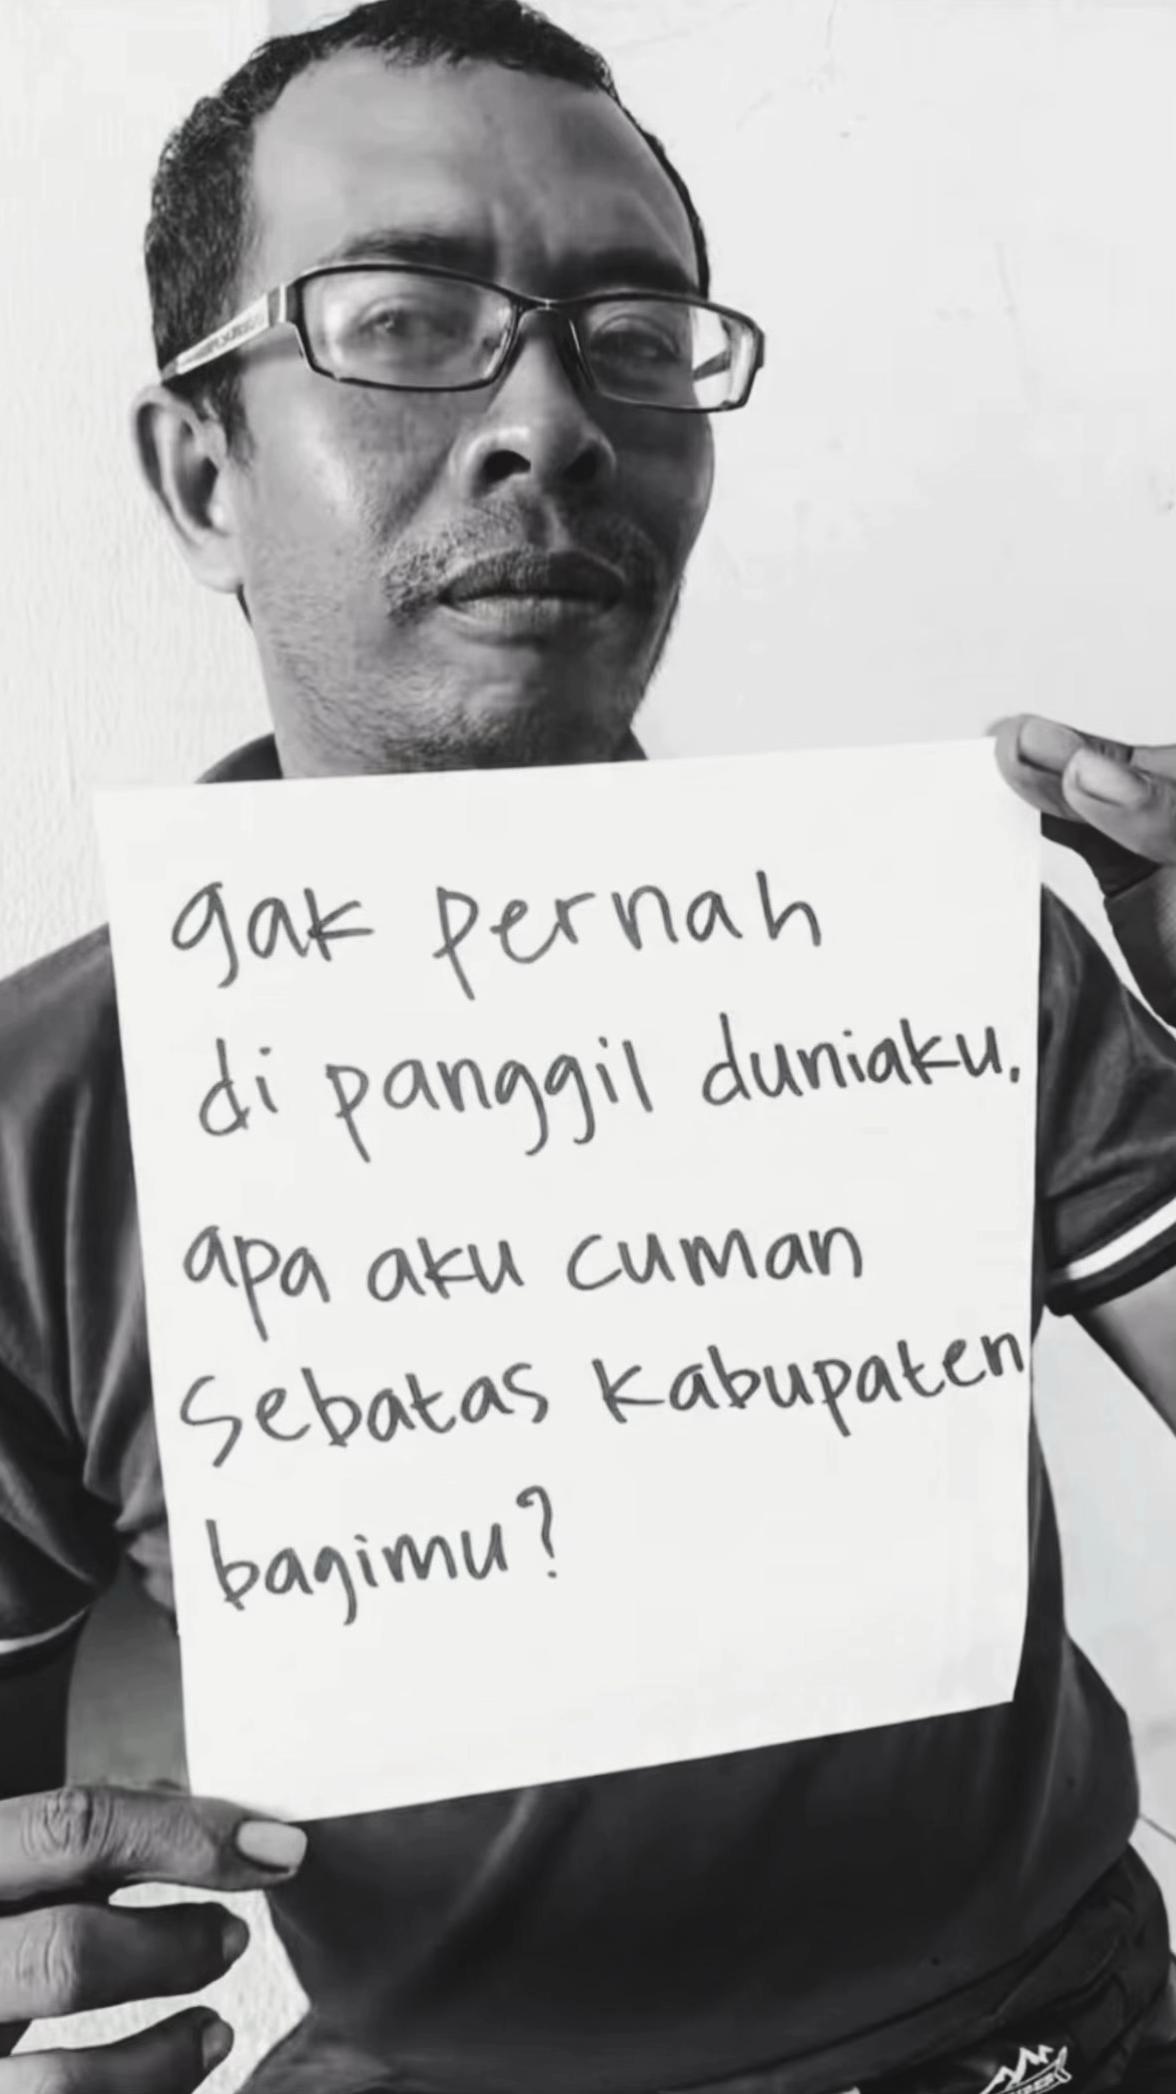 gak pernah
di panggil duniaku.
apa aku cuman
sebatas kabupaten
bagimu?